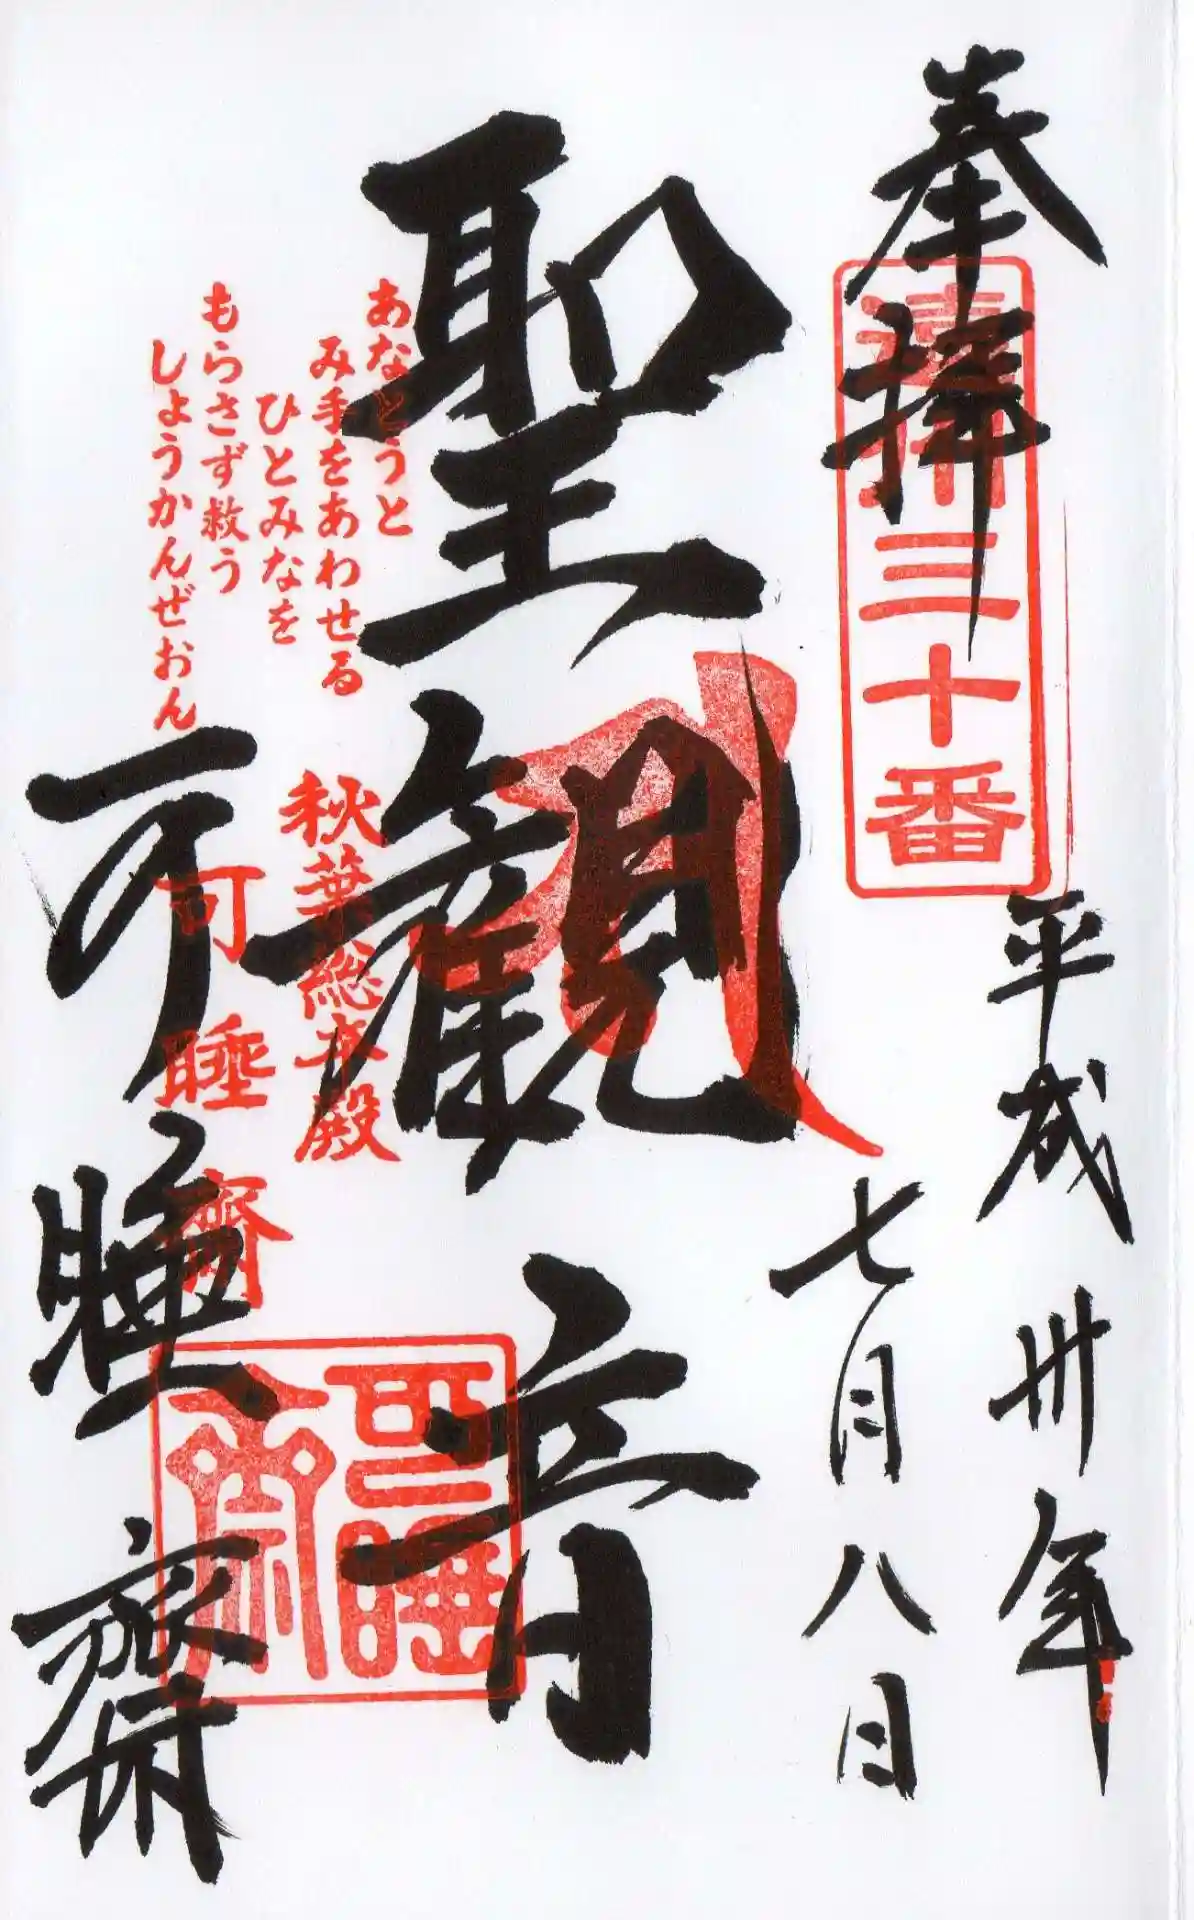 奉拝
遠州三十番
平成卅年
七月八日
聖観音
あなとうと
み手をあわせる
ひとみなを
もらさず救う
しょうかんぜおん
秋葉総本殿
可睡齋
可睡齋
可睡齋